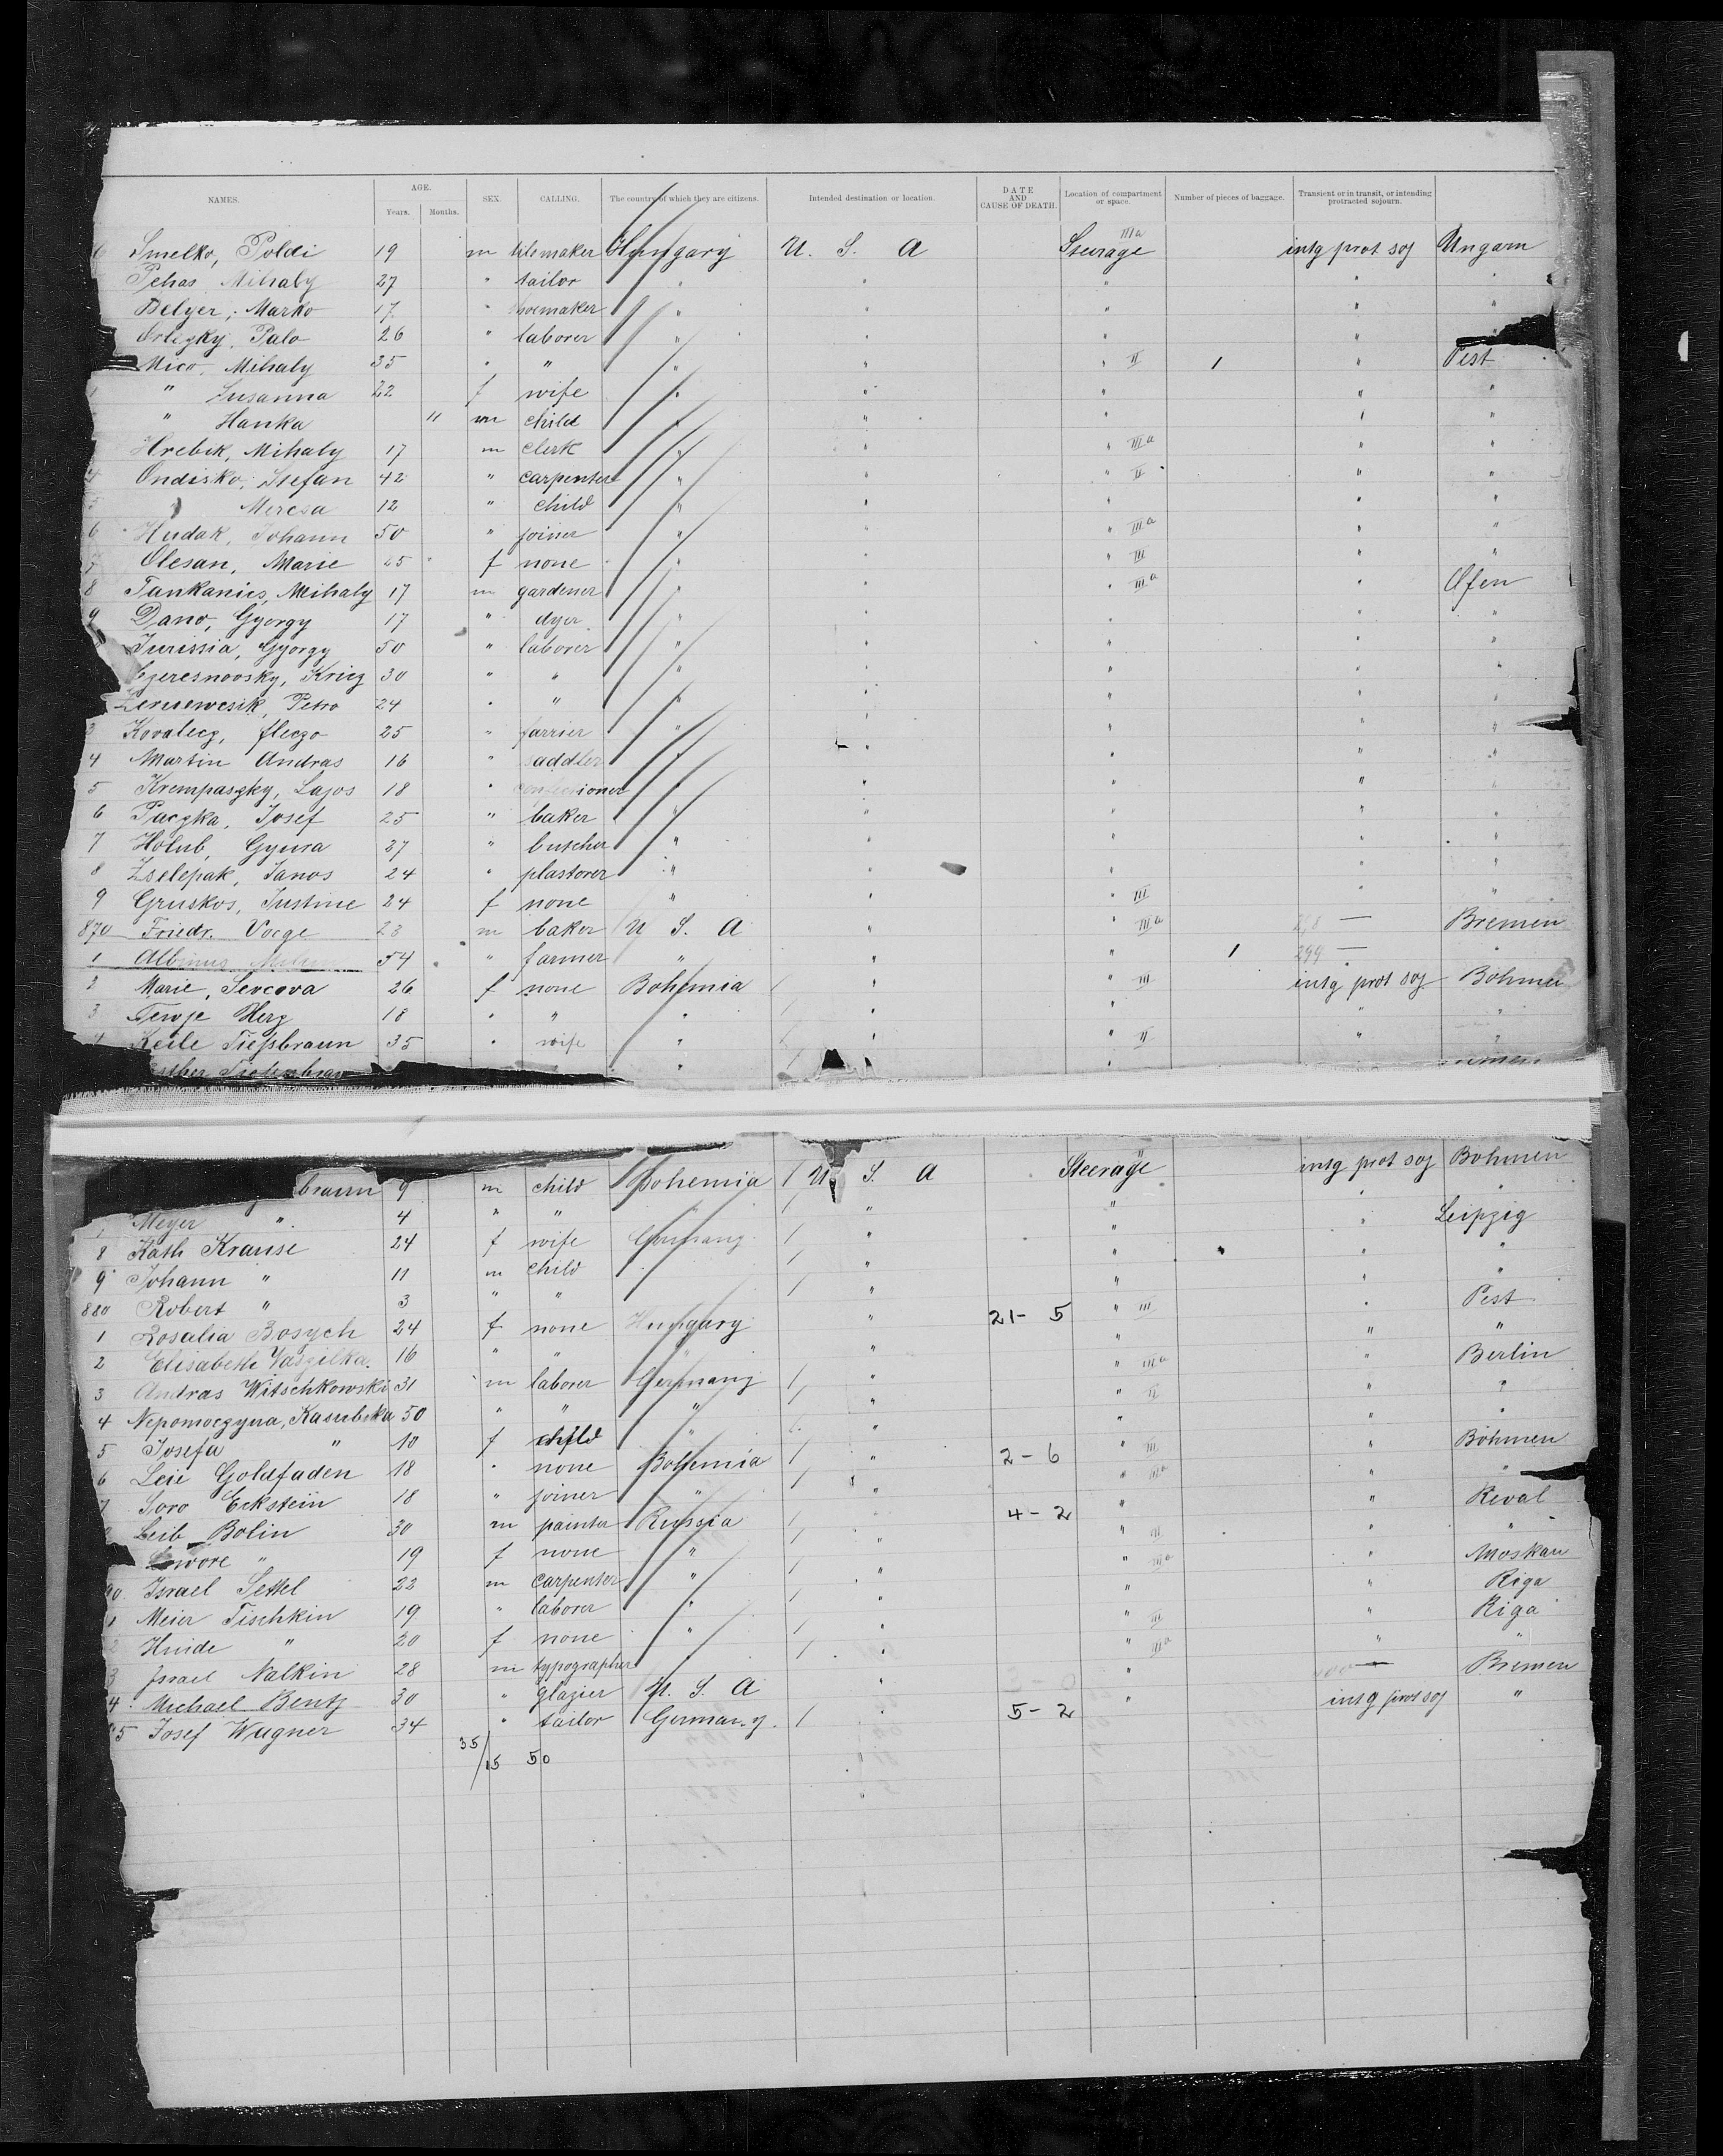 NAMES. AGE. Years. Months. SEX. CALLING. The country of which they are citizens. Intended destination or location. DATE AND CAUSE OF DEATH. Location of compartment or space. Number of pieces of baggage. Transient or in transit, or intending protracted sojourn.
6 Smelko, Poldi 19 m tilemaker Hungary U. S. A Steerage IIIa intg prot soj Ungarn
Pehas, Mihaly 27 " tailor " " " " "
Delyer, Marko 17 " shoemaker " " " " "
Orlizky, Palo 26 " laborer " " " " "
Mico, Mihaly 35 " " " " " II 1 " Pest
" Susanna 22 f wife " " " " "
" Hanka 11 m child " " " " "
Hrebik, Mihaly 17 m clerk " " " IIIa " "
Ondisko, Stefan 42 " carpenter " " " II " "
5 " Mercsa 12 " child " " " " "
6 Hudak, Johann 50 " joiner " " " IIIa " "
7 Olesan, Marie f none " " " III " "
8 Tankanics, Mihaly 17 m gardener " " " IIIa " Ofen
9 Dano, Gyorgy 17 " dyer " " " " "
Jurissia, Gyorgy 50 " laborer " " " " "
Czeresnovsky, Krieg 30 " " " " " " "
Petro 24 " " " " " " "
3 Kovalecz, 25 " farrier " " " " "
4 Martin Andras 16 " saddler " " " " "
5 Krempaszky, Lajos 18 " confectioner " " " " "
6 Paczka, Josef 25 " baker " " " " "
7 Holub, Gyura 27 " butcher " " " " "
8 Zselepak, Janos 24 " plastorer " " " " "
9 Gruskos, Justine 24 f none " " " III " "
870 Friedr. Voege 23 m baker U S. A " " IIIa — Bremen
1 Albinus 54 " farmer " " " 1 299 — "
2 Marie, Sevcova 26 f none Bohemia " " III intg prot soj Bohmen
3 Tewje Herz 18 " " " " " " "
4 Keile Tiefsbraun 35 " wife " " " II " "
Esther " " "
braun 9 m child Bohemia U S. A Steerage II intg prot soj Bohmen
7 Meyer " 4 " " " " " " "
8 Kath Krause 24 f wife Germany " " " Leipzig
9 Johann " 11 m child " " " " "
880 Robert " 3 " " " " " " "
1 Rosalia Bosych 24 f none Hungary " 21- 5 " III " Pest
2 Elisabeth Vaszilka. 16 " " " " " " "
3 Andras Witschkowski 31 m laborer Germany " " IIIa " Berlin
4 Nepomoczyna, Kasubska 50 " " " " " II " "
5 Josefa " 10 f child " " " " "
6 Leie Goldfaden 18 " none Bohemia " 2 - 6 " III " Böhmen
7 Soro Eckstein 18 " joiner " " " IIIa " "
Leib Bolin 30 m painter Russia " 4 - 2 " " Reval
" 19 f none " " " III " "
90 Israel Settel 22 m carpenter " " " IIIa " Moskau
1 Meier Tischkin 19 " laborer " " " " Riga
2 Hinde " 20 f none " " " III " Riga
3 Israel Nalkin 28 m typographer " " " IIIa " "
4 Michael Bentz 30 " glazier U. S. A " " — Bremen
95 Josef Wugner 34 " tailor Germany. " 5 - 2 " intg prot soj "
35/15 50